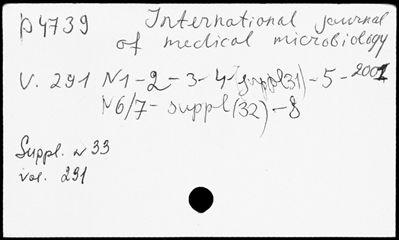 p4739 International journal
of medical microbiology
V. 291 N1-2-3-4-(suppl 31)-5-2001
N6/7-suppl(32)-8
Suppl. N 33
vol. 291